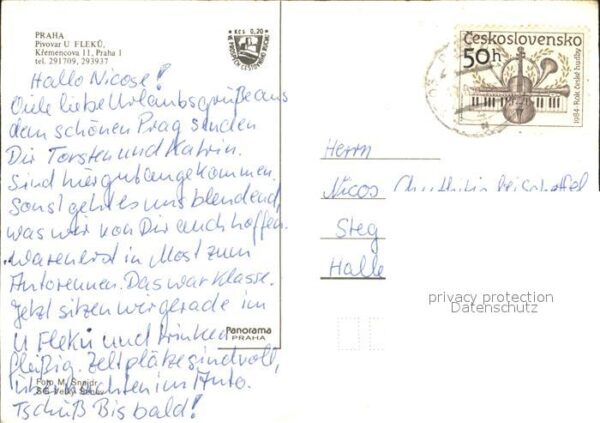 PRAHA
Pivovar U FLEKŮ,
Křemencova 11, Praha 1
tel. 291709, 293937
Kčs 0,20
Československo
50h
1984 Rok české hudby
Hallo Nicose!
Viele liebe Urlaubsgrüße aus
dem schönen Prag senden
Dir Torsten und Katrin.
Sind hier gut angekommen.
Sonst geht es uns blendend,
was wir von Dir auch hoffen.
Waren erst in Most zum
Autorennen. Das war Klasse.
Jetzt sitzen wir gerade im
U Flekú und trinken
fleißig. Zeltplätze sind voll,
übernachten im Auto.
Tschüß Bis bald!
Herrn
Nicos
Steg
Halle
Panorama
PRAHA
Foto M. Šnajdr
privacy protection
Datenschutz